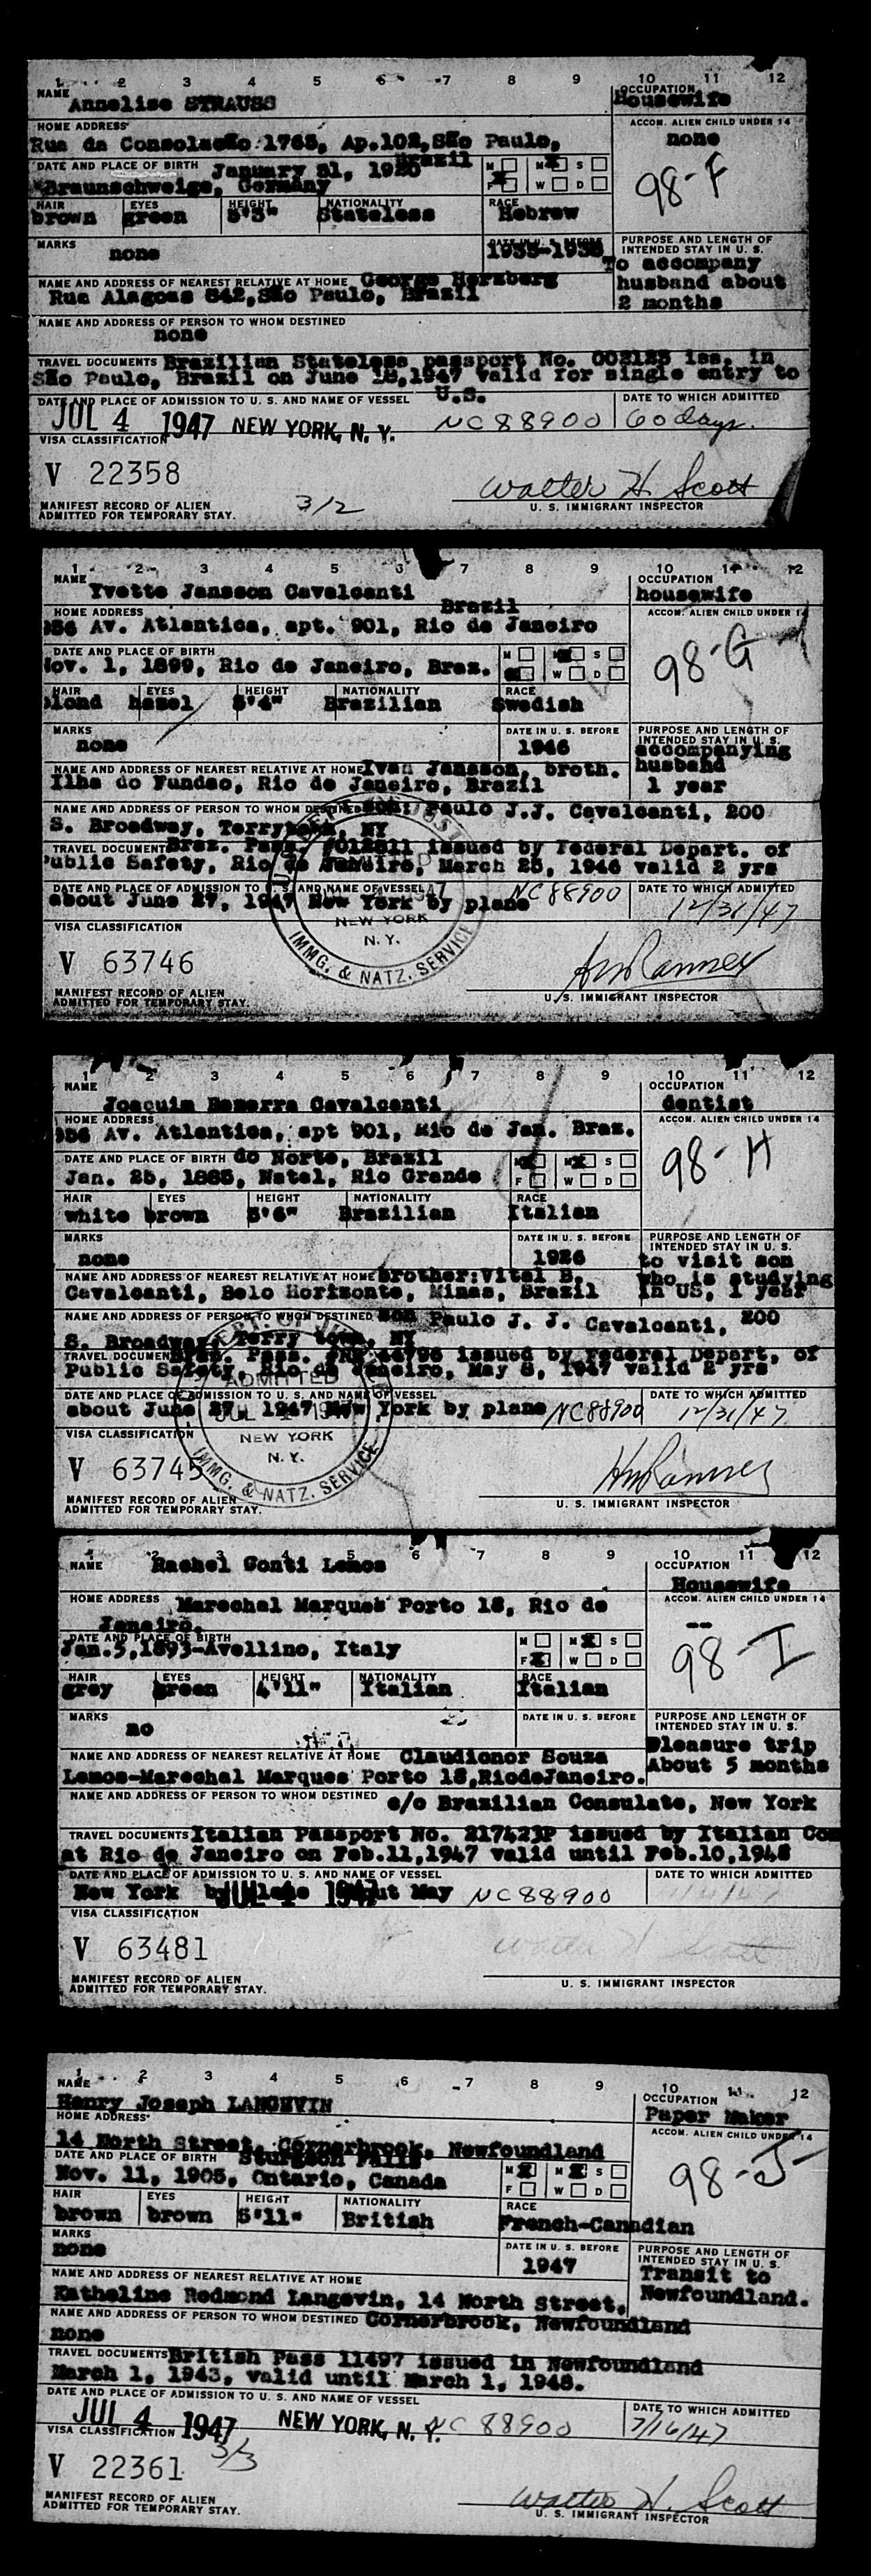 1 2 3 4 5 6 7 8 9 10 11 12
NAME Annelise STRAUSS
OCCUPATION Housewife
HOME ADDRESS
Rua da Consolação 1765, Ap.102, São Paulo,
Brazil
ACCOM. ALIEN CHILD UNDER 14
none
DATE AND PLACE OF BIRTH January 31, 1920
Braunschweige, Germany
M M S
F W D
98-F
HAIR EYES HEIGHT NATIONALITY RACE
brown green 5'3" Stateless Hebrew
MARKS
none
1935-1936
PURPOSE AND LENGTH OF
INTENDED STAY IN U. S.
To accompany
husband about
2 months
NAME AND ADDRESS OF NEAREST RELATIVE AT HOME George Herzberg
Rua Alagoas 642, São Paulo, Brazil
NAME AND ADDRESS OF PERSON TO WHOM DESTINED
none
TRAVEL DOCUMENTS Brazilian Stateless passport No. 002125 iss. in
São Paulo, Brazil on June 18,1947 valid for single entry to
U.S.
DATE AND PLACE OF ADMISSION TO U. S. AND NAME OF VESSEL
DATE TO WHICH ADMITTED
JUL 4 1947 NEW YORK, N. Y. NC88900 60 days.
VISA CLASSIFICATION
V 22358
Walter H. Scott
MANIFEST RECORD OF ALIEN
ADMITTED FOR TEMPORARY STAY.
3/2
U. S. IMMIGRANT INSPECTOR
1 2 3 4 5 6 7 8 9 10 11 12
NAME Yvette Jansson Cavalcanti
OCCUPATION
housewife
HOME ADDRESS Brazil
Av. Atlantica, apt. 901, Rio de Janeiro
ACCOM. ALIEN CHILD UNDER 14
DATE AND PLACE OF BIRTH
Nov. 1, 1899, Rio de Janeiro, Braz.
M M S
F W D
98-G
HAIR EYES HEIGHT NATIONALITY RACE
blond hazel 5'4" Brazilian Swedish
MARKS
none
DATE IN U. S. BEFORE
1946
PURPOSE AND LENGTH OF
INTENDED STAY IN U. S.
accompanying
husband
1 year
NAME AND ADDRESS OF NEAREST RELATIVE AT HOME Ivan Jansson, broth.
Ilha do Fundao, Rio de Janeiro, Brazil
NAME AND ADDRESS OF PERSON TO WHOM DESTINED son: Paulo J.J. Cavalcanti, 200
S. Broadway, Terrytown, NY
TRAVEL DOCUMENTS Braz. Pass. #012611 issued by Federal Depart. of
Public Safety, Rio de Janeiro, March 25, 1946 valid 2 yrs
DATE AND PLACE OF ADMISSION TO U. S. AND NAME OF VESSEL
DATE TO WHICH ADMITTED
about June 27, 1947 New York by plane NC88900 12/31/47
NEW YORK
N. Y.
IMMG. & NATZ. SERVICE
VISA CLASSIFICATION
V 63746
MANIFEST RECORD OF ALIEN
ADMITTED FOR TEMPORARY STAY.
U. S. IMMIGRANT INSPECTOR
1 2 3 4 5 6 7 8 9 10 11 12
NAME
Joaquim Bezerra Cavalcanti
OCCUPATION
dentist
HOME ADDRESS
Av. Atlantica, apt 901, Rio de Jan. Braz.
ACCOM. ALIEN CHILD UNDER 14
DATE AND PLACE OF BIRTH do Norte, Brazil
Jan. 25, 1885, Natal, Rio Grande
M M S
F W D
98-H
HAIR EYES HEIGHT NATIONALITY RACE
white brown 5'6" Brazilian Italian
MARKS
none
DATE IN U. S. BEFORE
1926
PURPOSE AND LENGTH OF
INTENDED STAY IN U. S.
to visit son
who is studying
in US, 1 year
NAME AND ADDRESS OF NEAREST RELATIVE AT HOME brother: Vital B.
Cavalcanti, Belo Horizonte, Minas, Brazil
NAME AND ADDRESS OF PERSON TO WHOM DESTINED son Paulo J. J. Cavalcanti, 200
S. Broadway, Terry town, NY
TRAVEL DOCUMENTS Braz. Pass. issued by Federal Depart. of
Public Safety, Rio de Janeiro, May 6, 1947 valid 2 yrs
DATE AND PLACE OF ADMISSION TO U. S. AND NAME OF VESSEL
DATE TO WHICH ADMITTED
about June 27, 1947 New York by plane NC88900 12/31/47
ADMITTED
NEW YORK
N. Y.
IMMG. & NATZ. SERVICE
VISA CLASSIFICATION
V 63745
MANIFEST RECORD OF ALIEN
ADMITTED FOR TEMPORARY STAY.
U. S. IMMIGRANT INSPECTOR
1 2 3 4 5 6 7 8 9 10 11 12
NAME Rachel Conti Lemos
OCCUPATION
Housewife
HOME ADDRESS Marechal Marques Porto 18, Rio de
Janeiro.
ACCOM. ALIEN CHILD UNDER 14
--
DATE AND PLACE OF BIRTH
Jan.5,1893-Avellino, Italy
M M S
F W D
98-I
HAIR EYES HEIGHT NATIONALITY RACE
grey green 4'11" Italian Italian
MARKS
no
DATE IN U. S. BEFORE
PURPOSE AND LENGTH OF
INTENDED STAY IN U. S.
Pleasure trip
About 5 months
NAME AND ADDRESS OF NEAREST RELATIVE AT HOME Claudionor Souza
Lemos-Marechal Marques Porto 18,RiodeJaneiro.
NAME AND ADDRESS OF PERSON TO WHOM DESTINED c/o Brazilian Consulate, New York
TRAVEL DOCUMENTS Italian Passport No. 217423P issued by Italian Con
at Rio de Janeiro on Feb.11,1947 valid until Feb.10,1948
DATE AND PLACE OF ADMISSION TO U. S. AND NAME OF VESSEL
DATE TO WHICH ADMITTED
New York by May NC88900
VISA CLASSIFICATION
V 63481
Walter H Scott
MANIFEST RECORD OF ALIEN
ADMITTED FOR TEMPORARY STAY.
U. S. IMMIGRANT INSPECTOR
1 2 3 4 5 6 7 8 9 10 11 12
NAME
Henry Joseph LANGEVIN
OCCUPATION
Paper Maker
HOME ADDRESS
14 North Street, Cornerbrook, Newfoundland
ACCOM. ALIEN CHILD UNDER 14
DATE AND PLACE OF BIRTH Sturgeon Falls
Nov. 11, 1905, Ontario, Canada
M M S
F W D
98-J
HAIR EYES HEIGHT NATIONALITY RACE
brown brown 5'11" British French-Canadian
MARKS
none
DATE IN U. S. BEFORE
1947
PURPOSE AND LENGTH OF
INTENDED STAY IN U. S.
Transit to
Newfoundland.
NAME AND ADDRESS OF NEAREST RELATIVE AT HOME
Katheline Redmond Langevin, 14 North Street,
NAME AND ADDRESS OF PERSON TO WHOM DESTINED Cornerbrook, Newfoundland
none
TRAVEL DOCUMENTS British Pass 11497 issued in Newfoundland
March 1, 1943, valid until March 1, 1948.
DATE AND PLACE OF ADMISSION TO U. S. AND NAME OF VESSEL
DATE TO WHICH ADMITTED
JUL 4 1947 NEW YORK, N. Y. NC 88900 7/16/47
VISA CLASSIFICATION
3/3
V 22361
Walter H. Scott
MANIFEST RECORD OF ALIEN
ADMITTED FOR TEMPORARY STAY.
U. S. IMMIGRANT INSPECTOR